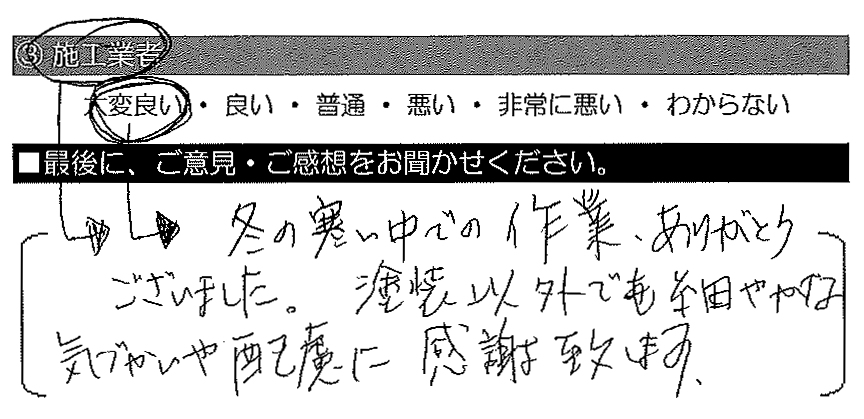 ③ 施工業者
大変良い・良い・普通・悪い・非常に悪い・わからない
■最後に、ご意見・ご感想をお聞かせください。
冬の寒い中での作業、ありがとう
ございました。塗装以外でも細やかな
気づかいや配慮に感謝致します。